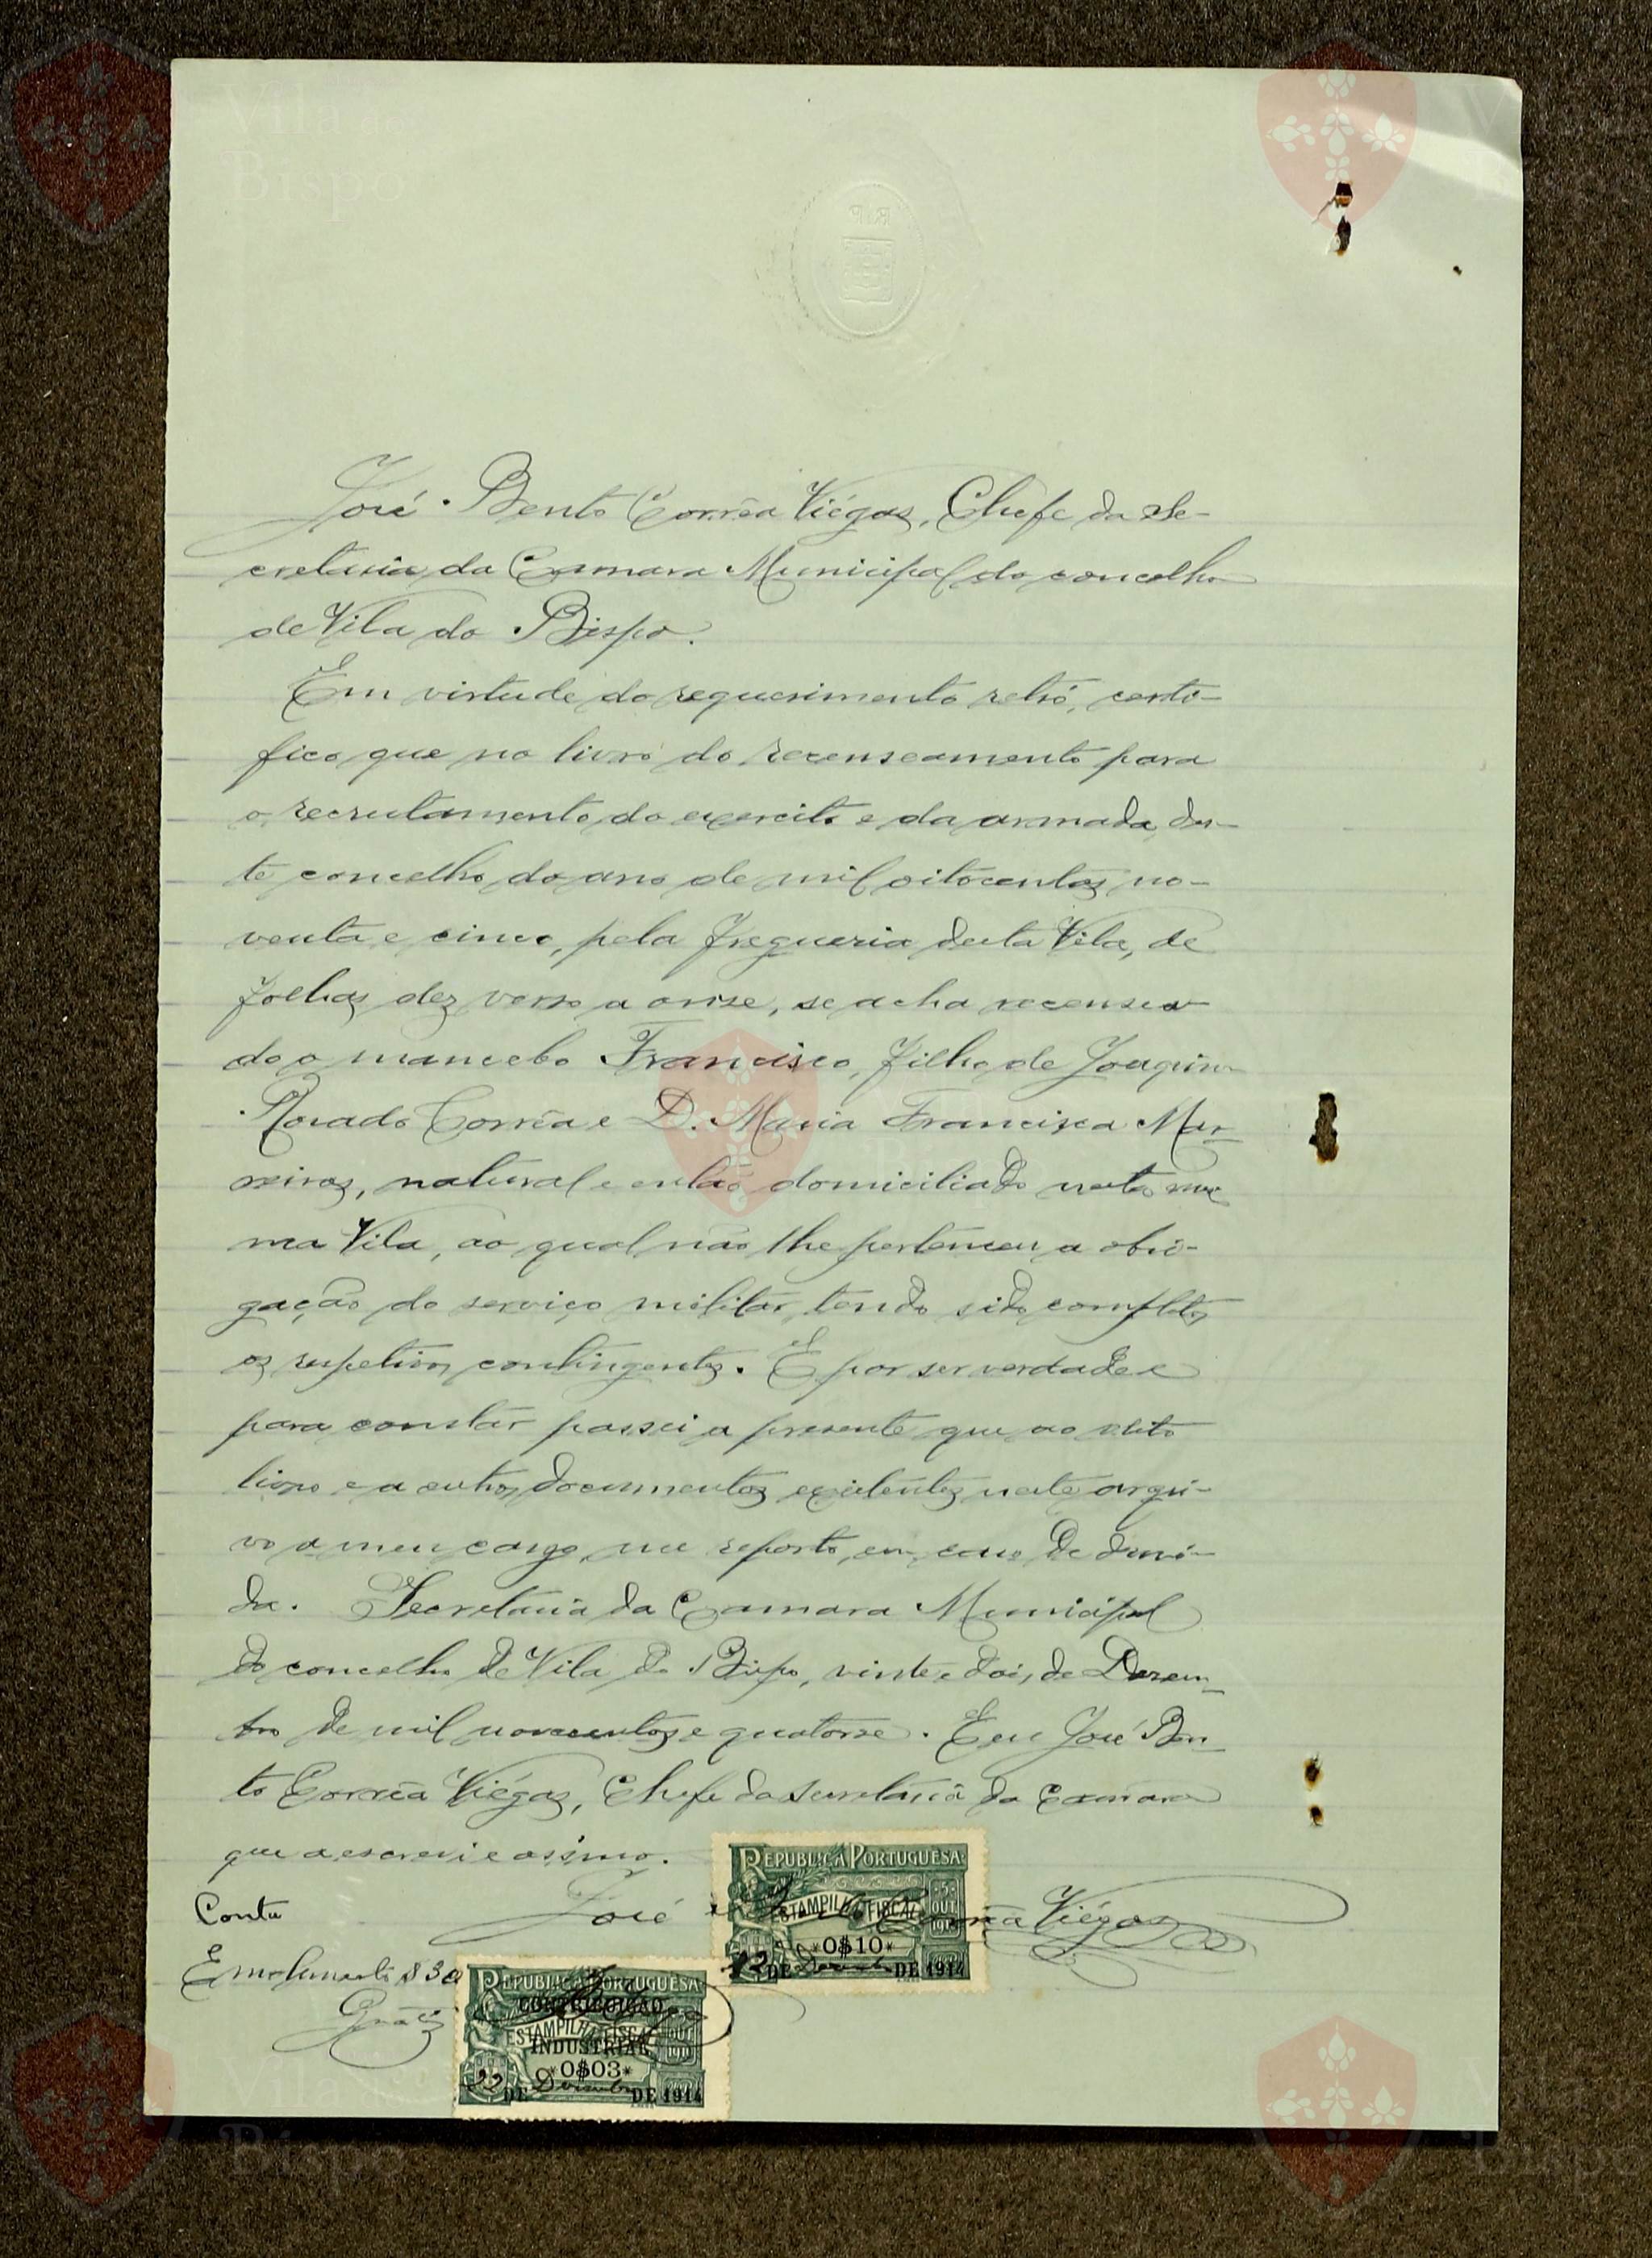 José Bento Corrêa Viégas, Chefe da Se-
cretaria da Camara Municipal do concelho
de Vila do Bispo.
Em virtude do requerimento retró, certi-
fico que no livro do recenseamento para
o recrutamento do exercito e da armada, des-
te concelho do ano de mil oitocentos no-
venta e cinco, pela freguesia desta Vila, de
folhas dez verso a onse, se acha recensea-
do o mancebo Francisco, filho de Joaquim
Corrêa e D. Maria Francisca Mar-
reiros, natural e então domiciliado nesta mes-
ma Vila, ao qual não lhe pertenceu a obri-
gação do serviço militar, tendo sido completos
os respetivos contingentes. E por ser verdade e
para constar passei a presente que ao dito
livro e a outros documentos existentes neste arqui-
vo a meu cargo, me reporto, em caso de duvi-
da. Secretaria da Camara Municipal
do concelho de Vila do Bispo, vinte e dois, de Dezem-
bro de mil novecentos e quatorse. E eu José Ben-
to Corrêa Viégas, Chefe da Secretaria da Camara
que a escrevi e assino.
Conta
José Bento Corrêa Viégas
REPUBLICA PORTUGUESA
ESTAMPILHA FISCAL
5 OUT 1910
*0$10*
22 DE Dezembro DE 1914
Emolumento $30
REPUBLICA PORTUGUESA
CONTRIBUIÇÃO
ESTAMPILHA FISCAL
INDUSTRIAL
OUT 1910
*0$03*
22 DE Dezembro DE 1914
Vila do
Bispo